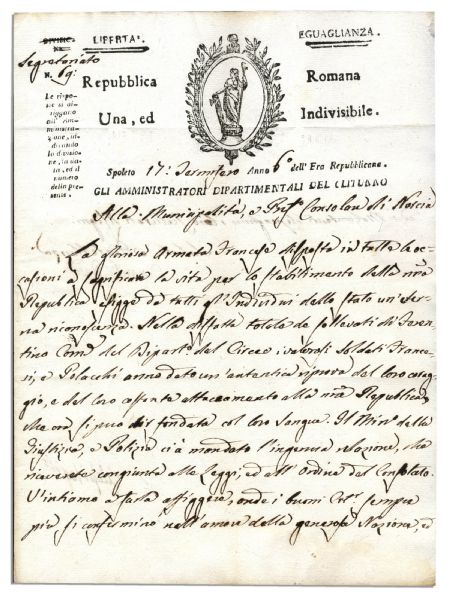 DIVISIONE. LIBERTA'. EGUAGLIANZA.
Segretariato
N. 69:
Le rispo-
ste si di-
riggano
all' Am-
minist-
zione, in-
dicando
la divisio-
ne, la da-
ta, ed il
numero
della pre-
sente.
Repubblica Romana
Una, ed Indivisibile.
Spoleto 17: Termifero Anno 6° dell' Era Repubblicana.
GLI AMMINISTRATORI DIPARTIMENTALI DEL CLITUNNO
Alla Municipalità, e Pref. Consolare di Norcia
La gloriosa Armata Francese disposta in tutte le oc-
casioni a sagrificare la vita per lo stabilimento della nrã
Repubblica esigge da tutti gl'Individui dello stato un'eter-
na riconoscenza. Nella disfatta totale de sollevati di Feren-
tino Com.e del Dipart.o del Circeo i valorosi soldati France-
si, e Polacchi anno dato un'autentica riprova del loro corag-
gio, e del loro costante attaccamento alla nrã Repubblica,
che ora si può dir fondata col loro sangue. Il Min.o della
Giustizia, e Polizia ci à mandato l'ingenua relazione, che
riceverete congiunta alle Leggi, ed all'Ordine del Consolato.
V'invitiamo a farla affiggere, onde i buoni Citt.i sempre
più si confermino nell'amore della generosa Nazione, ed